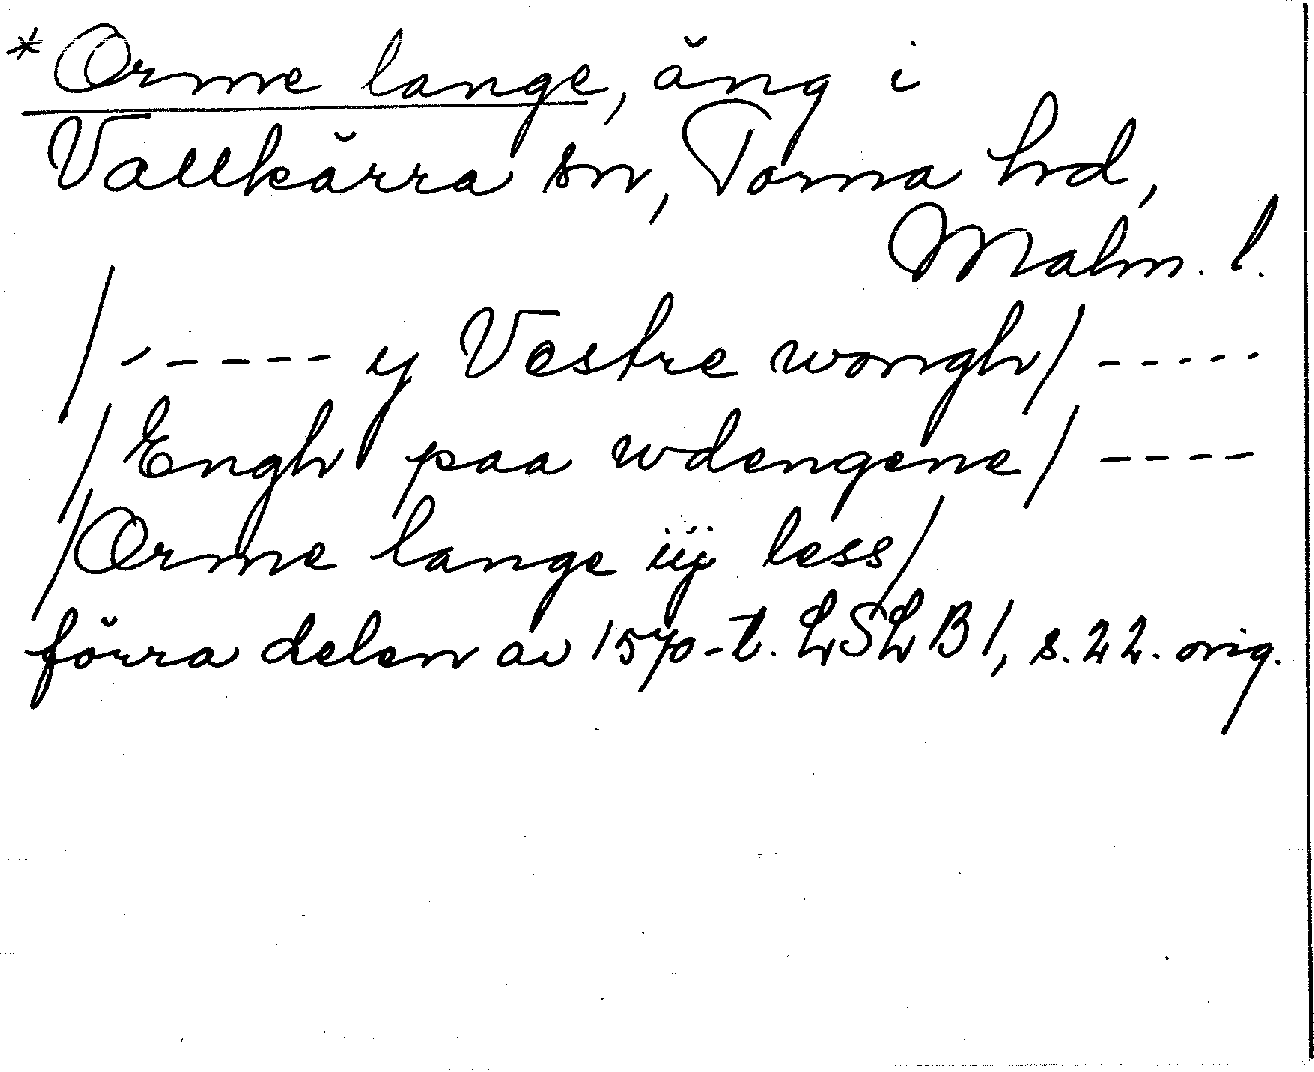 *Orme lange, äng i
Vallkärra sn, Torna hd,
Malm. l.
/----- y Vestre wongh/-----
/Engh paa wdengene/----
/Orme lange iij less/
förra delen av 1570-t. LSLB 1, s. 22. orig.